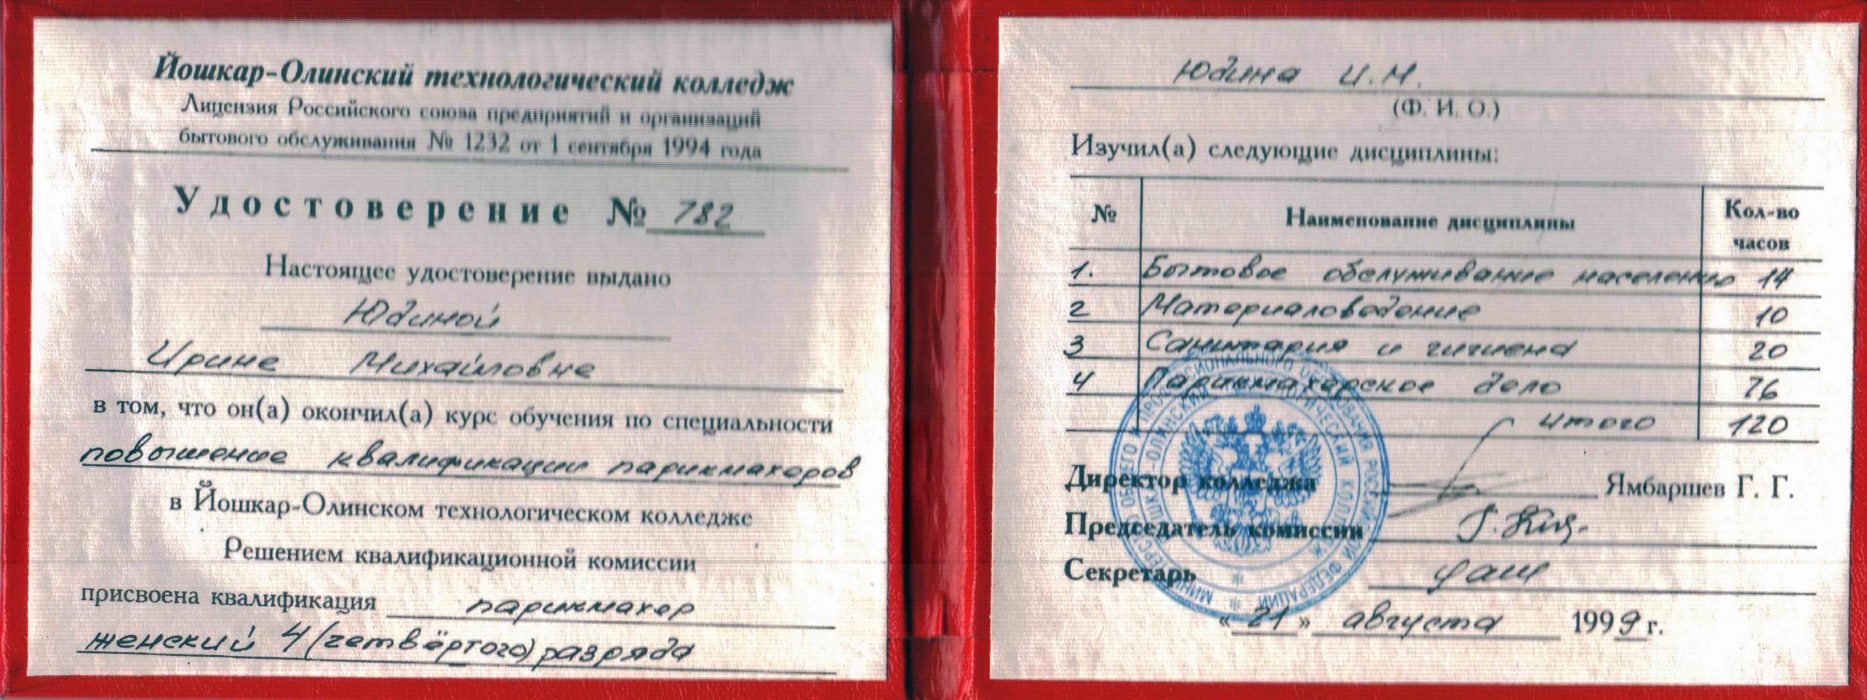 Йошкар-Олинский технологический колледж
Лицензия Российского союза предприятий и организаций
бытового обслуживания № 1232 от 1 сентября 1994 года
Удостоверение № 782
Настоящее удостоверение выдано
Юдиной
Ирине Михайловне
в том, что он(а) окончил(а) курс обучения по специальности
повышение квалификации парикмахеров
в Йошкар-Олинском технологическом колледже
Решением квалификационной комиссии
присвоена квалификация парикмахер
женский 4 (четвёртого) разряда
Юдина И.М.
(Ф. И. О.)
Изучил(а) следующие дисциплины:
№ Наименование дисциплины Кол-во часов
1. Бытовое обслуживание населения 14
2 Материаловедение 10
3 Санитария и гигиена 20
4 Парикмахерское дело 76
итого 120
Директор колледжа Ямбаршев Г. Г.
Председатель комиссии
Секретарь
«21» августа 1999 г.